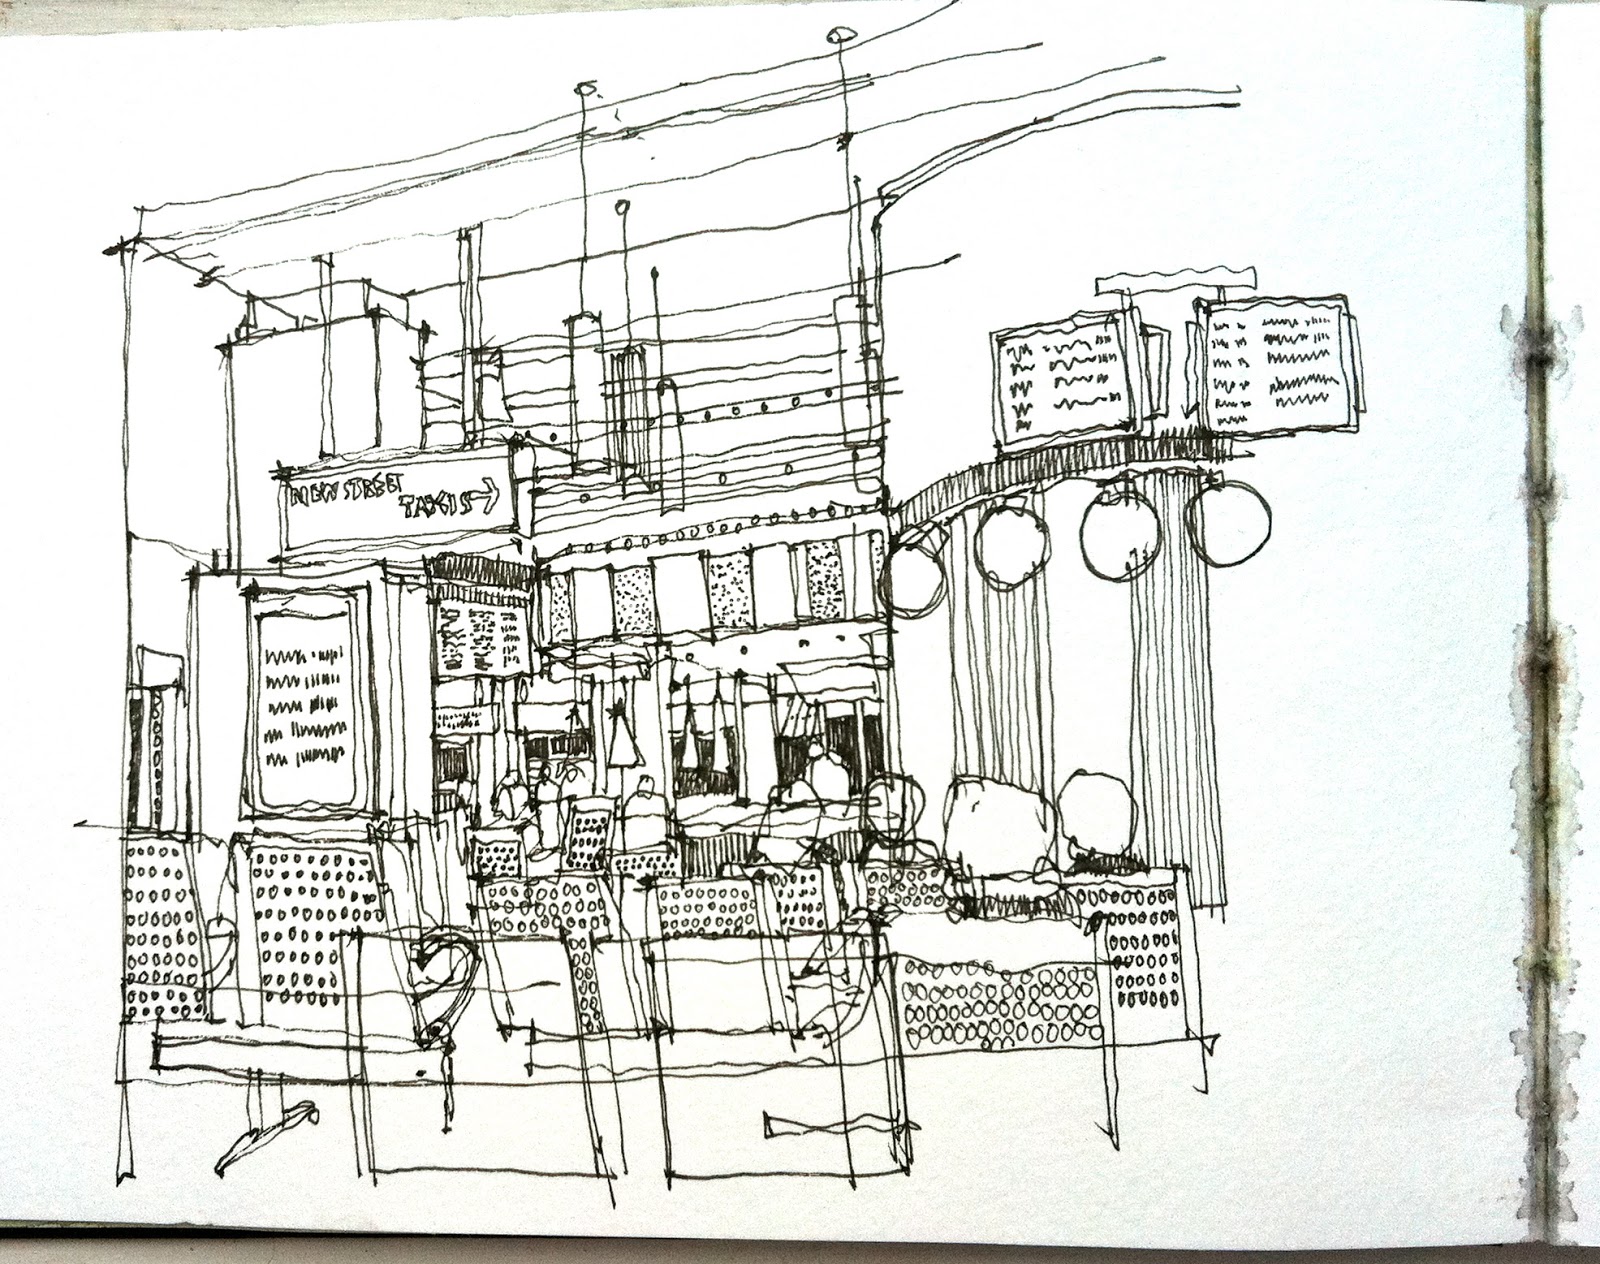 NEW STREET
TAXIS→